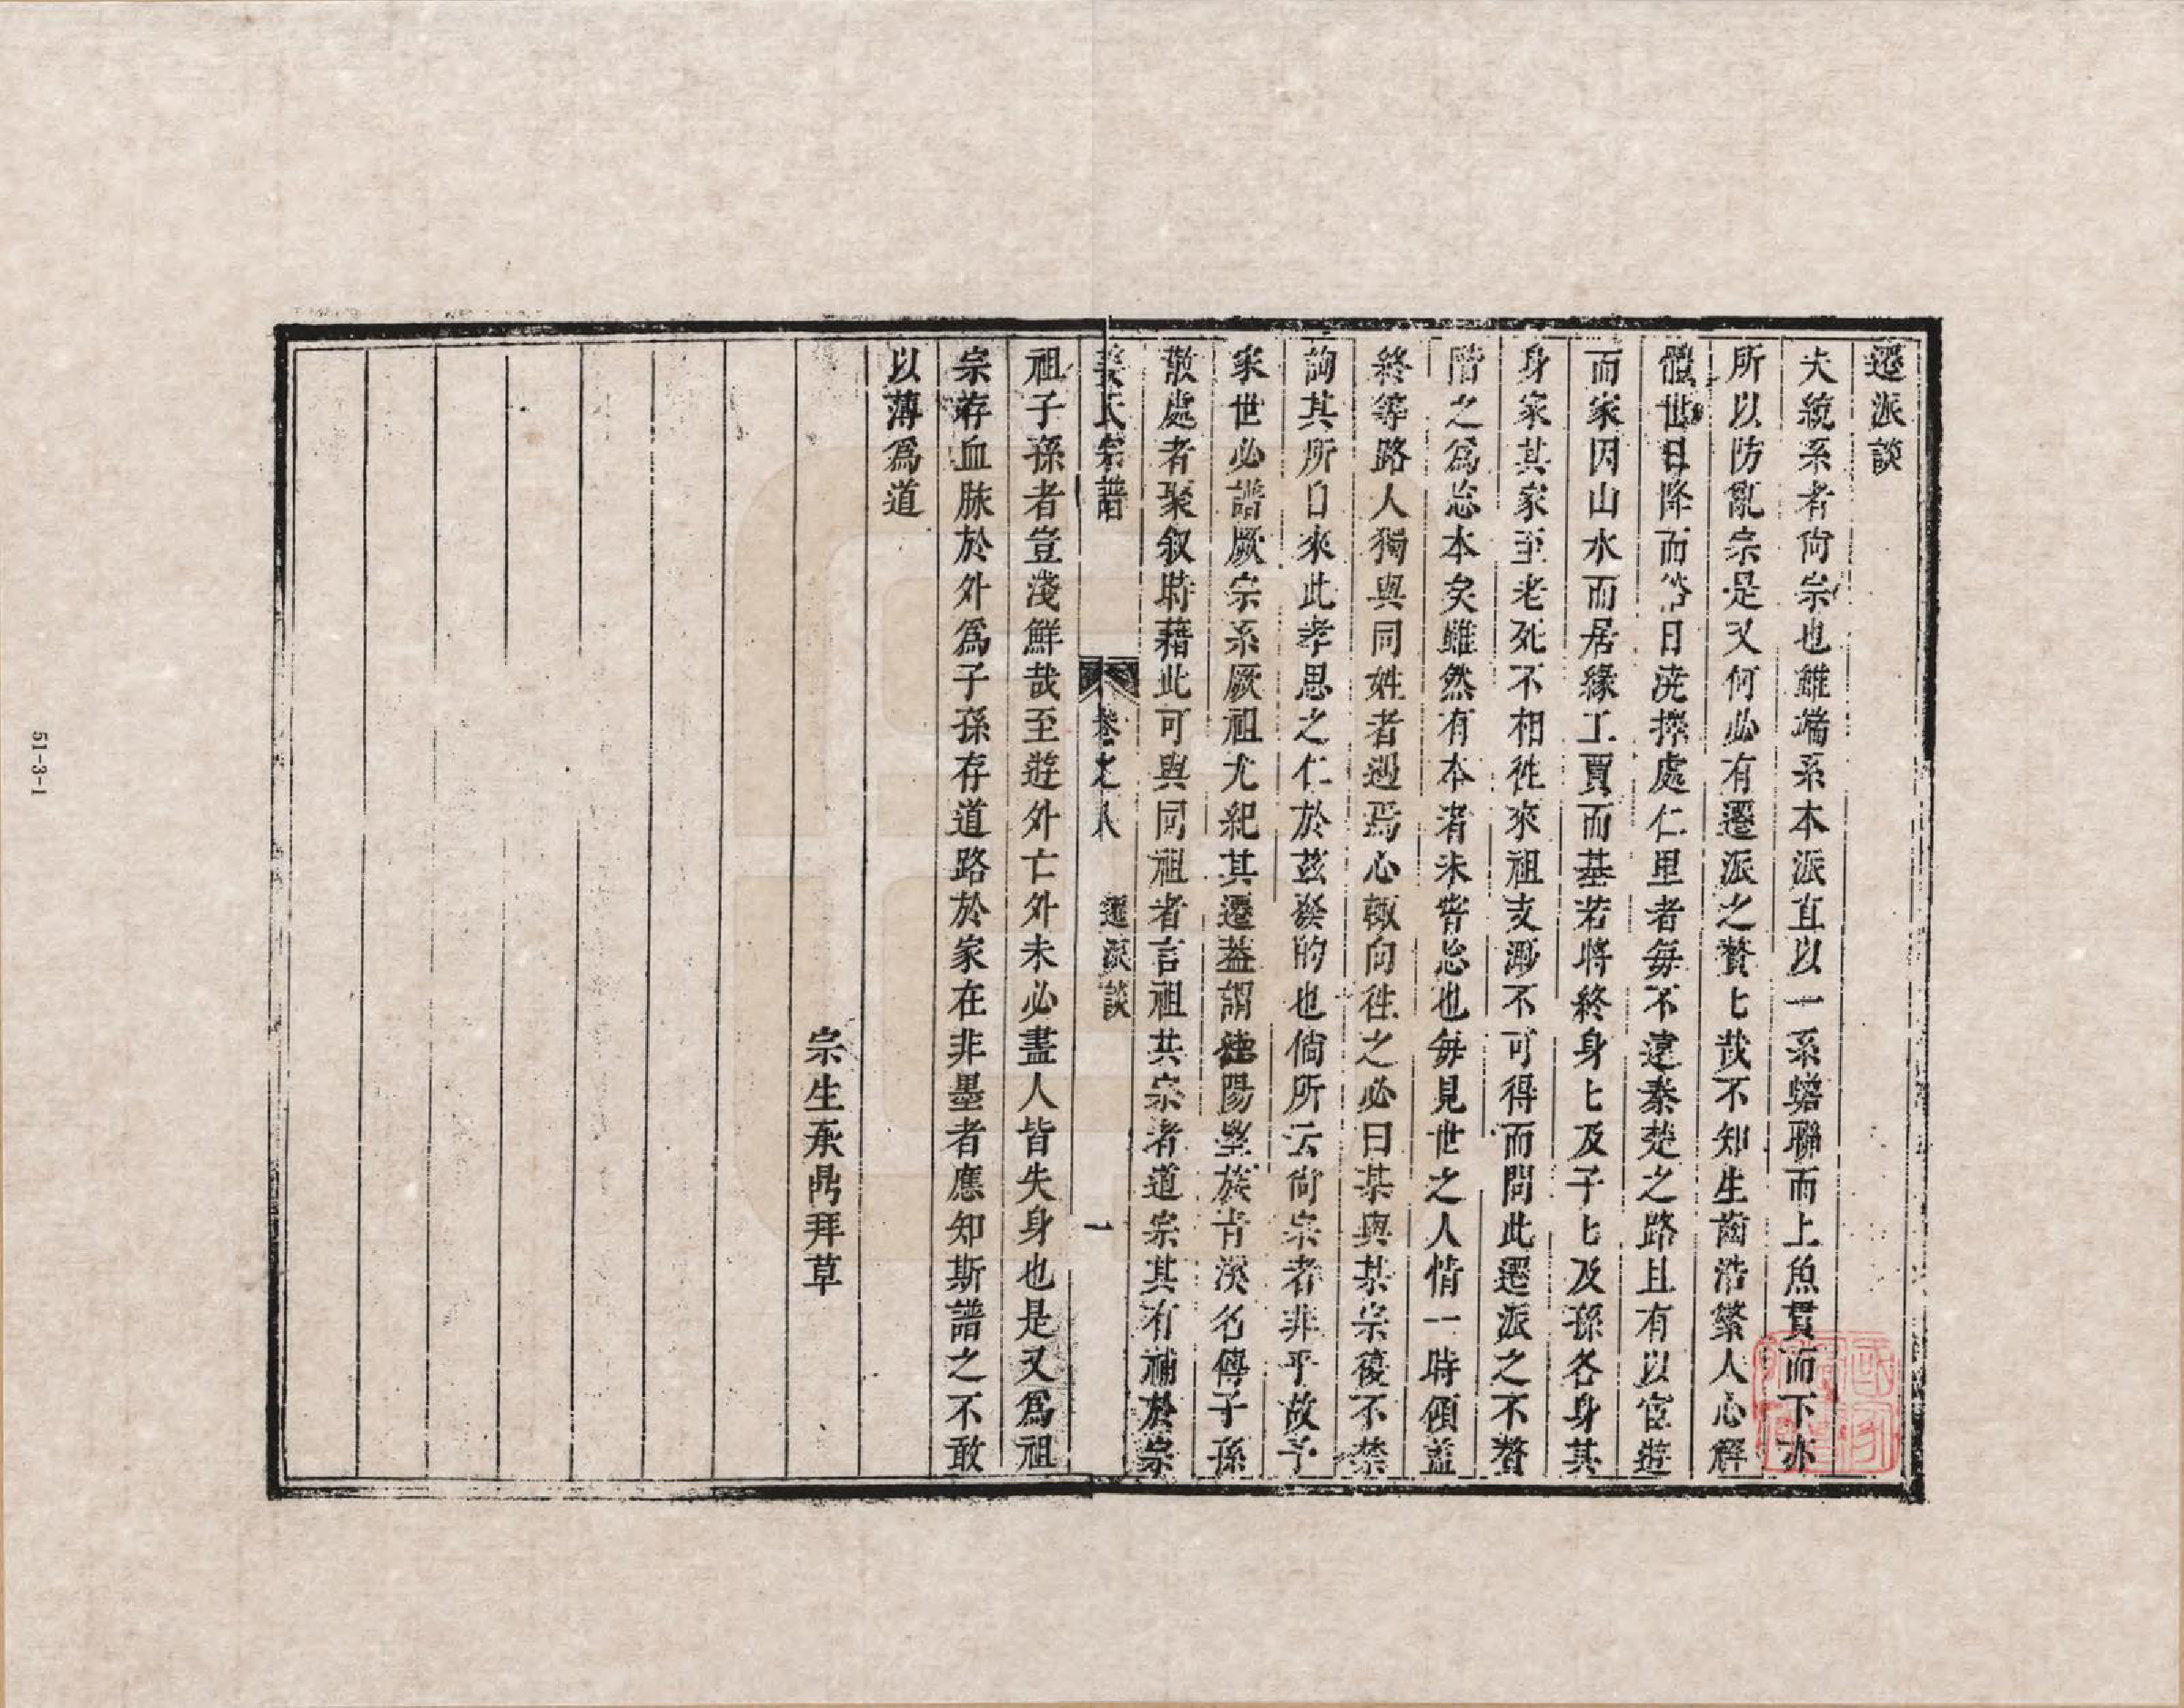 遷派談
夫統系者尙宗也雖端系本派直以一系蟬聯而上魚貫而下亦
所以防亂宗是又何必有遷派之贅匕哉不知生齒浩繁人心解
體世日降而俗日澆擇處仁里者每不遠秦楚之路且有以宦遊
而家因山水而居緣工賈而基若將終身匕及子匕及孫各身其
身家其家至老死不相徃來祖支源不可得而問此遷派之不贅
階之爲忘本矣雖然有本者未嘗忘也每見世之人情一時傾蓋
終等路人獨與同姓者遇焉心輙向徃之必曰某與某宗復不禁
詢其所自來此孝思之仁於茲發的也倘所云尙宗者非乎故予
家世必譜厥宗系厥祖尤紀其遷益謂德陽塋族青溪名傳子孫
散處者聚叙時藉此可與同祖者言祖共宗者道宗其有補於宗
姜氏宗譜 卷之八 遷派談 一
祖子孫者豈淺鮮哉至遊外亡外未必盡人皆失身也是又爲祖
宗存血脉於外爲子孫存道路於家在非墨者應知斯譜之不敢
以薄爲道
宗生承鼎拜草
51-3-1